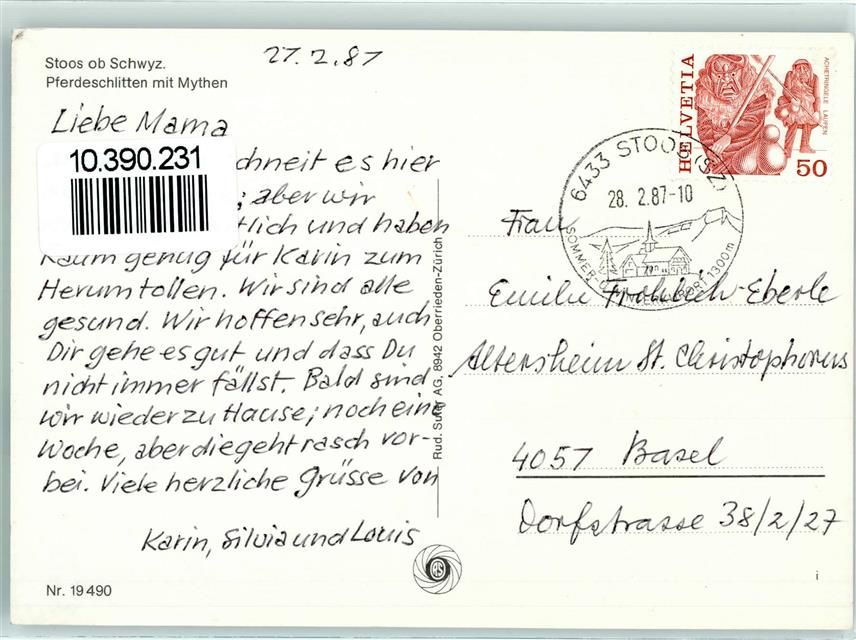 Stoos ob Schwyz.
Pferdeschlitten mit Mythen
27.2.87
Liebe Mama
10.390.231
chneit es hier
; aber wir
tlich und haben
kaum genug für Karin zum
Herumtollen. Wir sind alle
gesund. Wir hoffen sehr, auch
Dir gehe es gut und dass Du
nicht immer fällst. Bald sind
wir wieder zu Hause; noch eine
Woche, aber die geht rasch vor-
bei. Viele herzliche Grüsse von
Karin, Silvia und Louis
Nr. 19 490
Rud. Suter AG, 8942 Oberrieden-Zürich
RS
HELVETIA
ACHETRINGELE LAUPEN
50
6433 STOOS (SZ)
28. 2.87-10
SOMMER-U. WINTERKURORT 1300m
Frau
Emilie Fröhlich-Eberle
Altersheim St. Christophorus
4057 Basel
Dorfstrasse 38/2/27
i